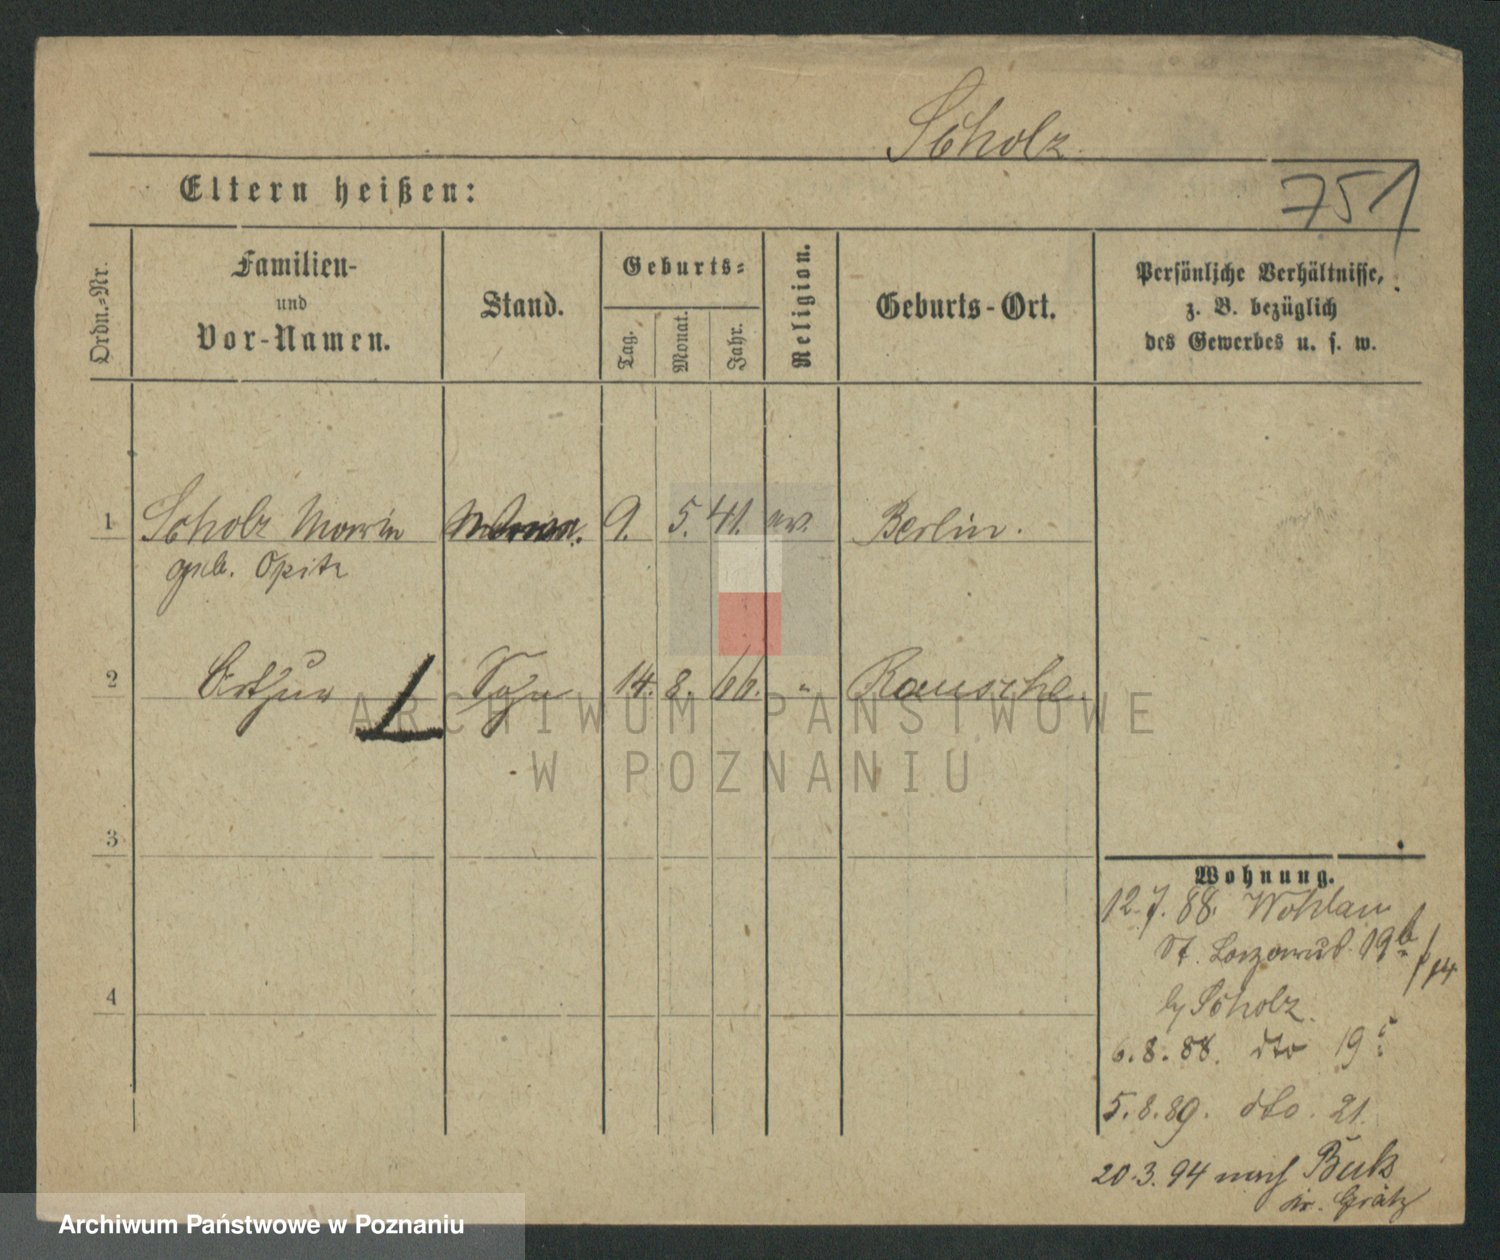 Scholz
Eltern heißen:
751
Ordn.-Nr.
Familien-
und
Vor-Namen.
Stand.
Geburts-
Tag.
Monat.
Jahr.
Religion.
Geburts-Ort.
Persönliche Verhältnisse,
z. B. bezüglich
des Gewerbes u. s. w.
1 Scholz Maria 9. 5. 41. ev. Berlin.
geb. Opitz
2 Arthur Sohn 14. 8. 66. " Rausche
3
4
Wohnung.
12.7.88. Wohlau
St. Lazarus 19 b /14
by Scholz.
6.8.88. dto 19 c
5.8.89. dto. 21.
20.3.94 nach Buk
Kr. Grätz
ARCHIWUM PAŃSTWOWE
W POZNANIU
Archiwum Państwowe w Poznaniu